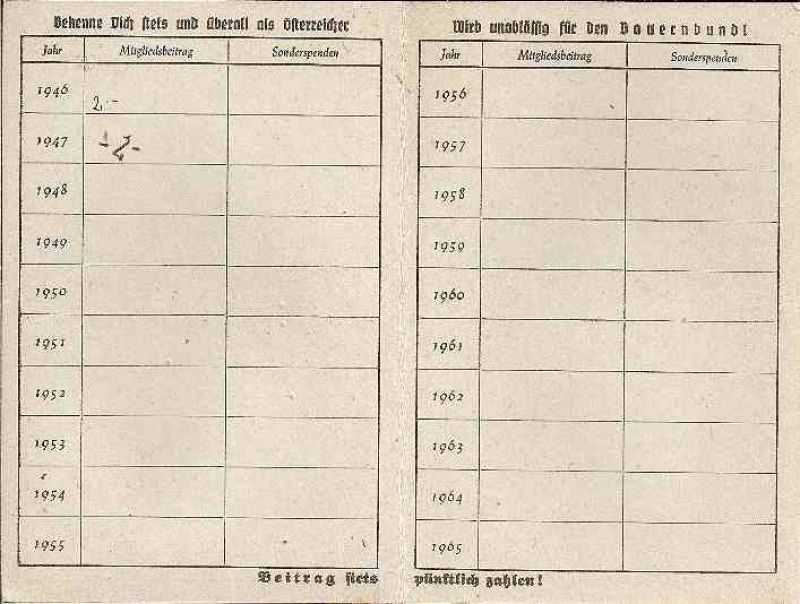 Bekenne Dich stets und überall als Österreicher
Jahr Mitgliedsbeitrag Sonderspenden
1946 2.-
1947
1948
1949
1950
1951
1952
1953
1954
1955
Beitrag stets
Wirb unablässig für den Bauernbund!
Jahr Mitgliedsbeitrag Sonderspenden
1956
1957
1958
1959
1960
1961
1962
1963
1964
1965
pünktlich zahlen!